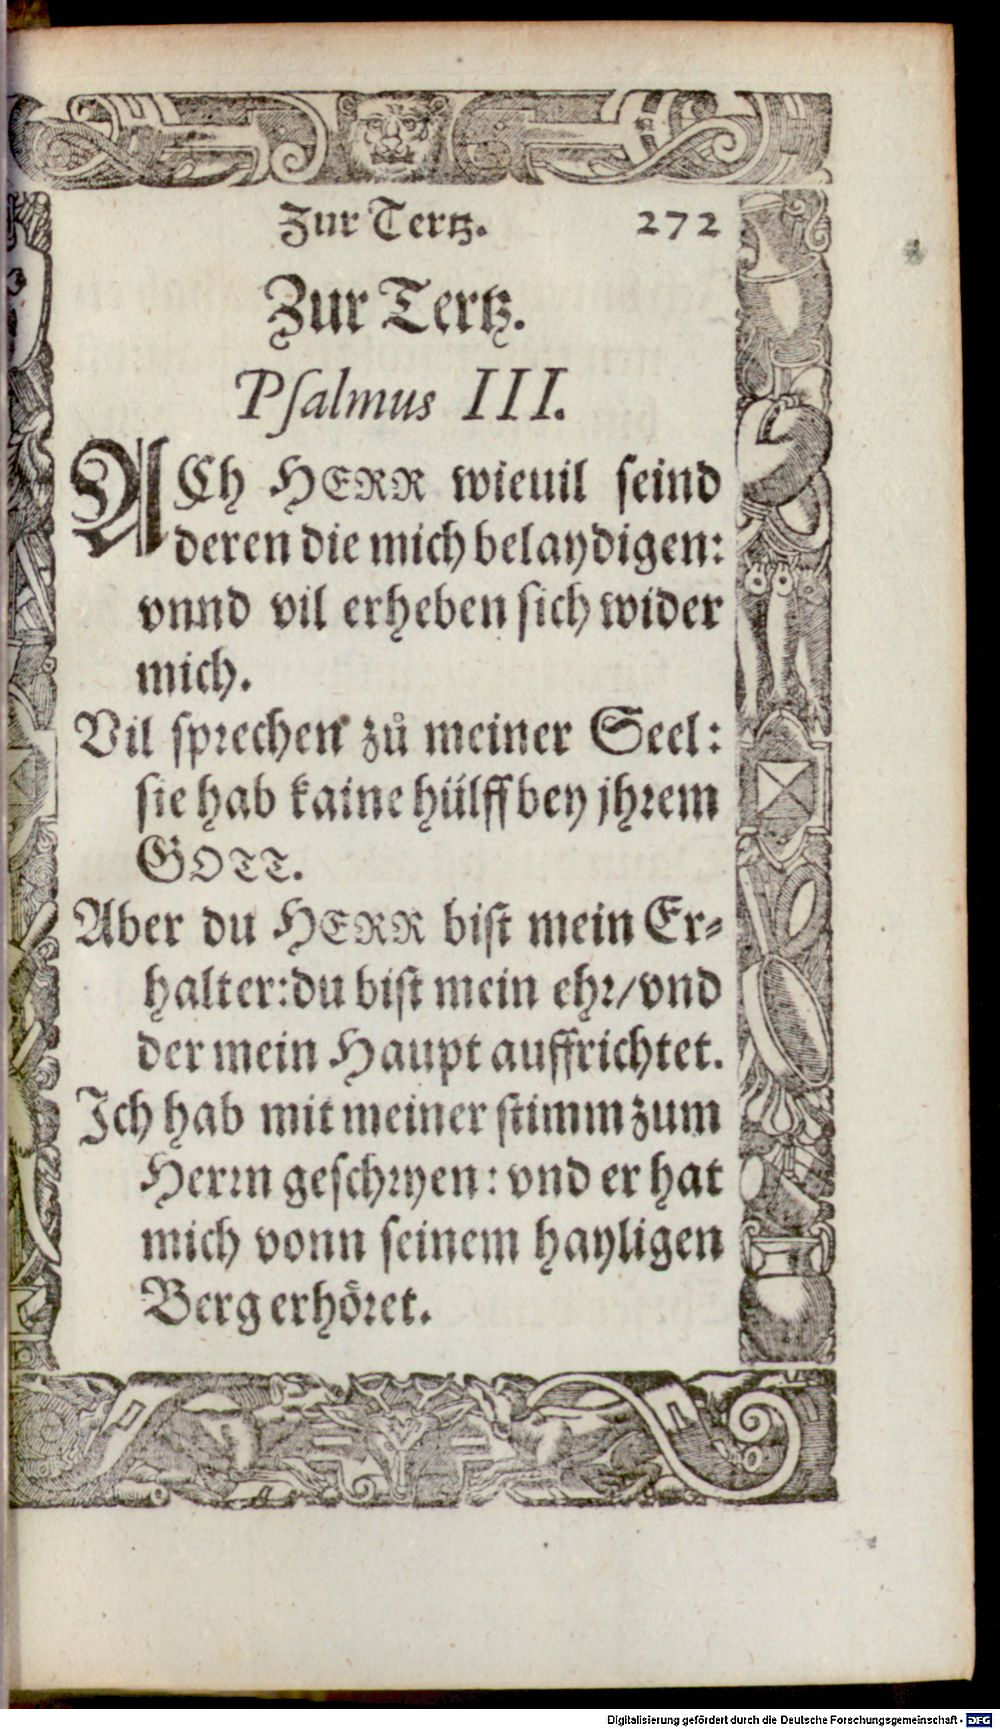 Zur Tertz. 272
Zur Tertz.
Pſalmus III.
ACh HERR wieuil ſeind
deren die mich belaydigen:
vnnd vil erheben ſich wider
mich.
Vil ſprechen zů meiner Seel:
ſie hab kaine hülff bey jhrem
GOTT.
Aber du HERR biſt mein Er⸗
halter: du biſt mein ehr/ vnd
der mein Haupt auffrichtet.
Ich hab mit meiner ſtimm zum
Herrn geſchryen: vnd er hat
mich vonn ſeinem hayligen
Berg erhöret.
Digitalisierung gefördert durch die Deutsche Forschungsgemeinschaft - DFG